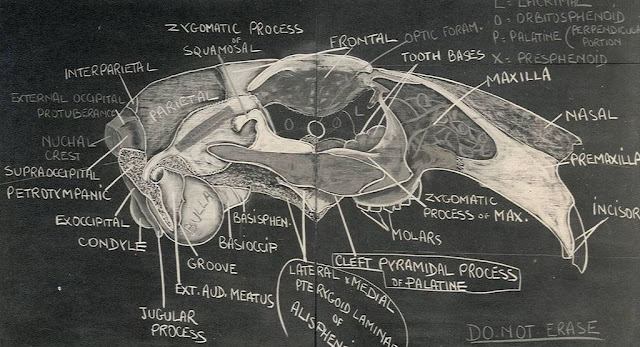 L = LACRIMAL
O = ORBITOSPHENOID
P = PALATINE (PERPENDICULAR
PORTION
X = PRESPHENOID
ZYGOMATIC PROCESS
OF
SQUAMOSAL
FRONTAL
OPTIC FORAM.
TOOTH BASES
INTERPARIETAL
MAXILLA
EXTERNAL OCCIPITAL
PROTUBERANCE
PARIETAL
NASAL
NUCHAL
CREST
O
O
L
SUPRAOCCIPITAL
PREMAXILLA
PETROTYMPANIC
EXOCCIPITAL
BULLA
BASISPHEN.
ZYGOMATIC
PROCESS OF MAX.
INCISOR
CONDYLE
BASIOCCIP
MOLARS
GROOVE
LATERAL & MEDIAL
PTERYGOID LAMINAE
OF
CLEFT PYRAMIDAL PROCESS
OF PALATINE
EXT. AUD. MEATUS
JUGULAR
PROCESS
DO NOT ERASE